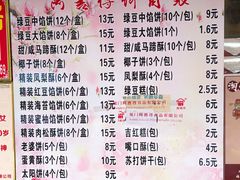 绿豆中馅饼(12个/盒) 13元
绿豆大馅饼(8个/盒) 15元
甜/咸马蹄酥(8个/盒) 15元
椰子饼(8个/盒) 15元
精装凤梨酥(6个/盒) 13元
精装绿豆馅饼(6个/盒) 13元
精装海苔馅饼(6个/盒) 13元
精装蜜柚馅饼(6个/盒) 13元
精装肉松酥饼(6个/盒) 13元
老婆饼(5个/包) 8元
蛋黄酥(3个/包) 8元
太阳饼(4个/包) 8元
绿豆中馅饼(10个/包) 9元
绿豆大馅饼 1.5元
甜/咸马蹄酥(10个/包) 9元
椰子饼 1.5元
凤梨酥 2元
绿豆馅饼 2元
吉红糕(包) 2.5元
嘴口酥(包) 5元
苏打饼干(包) 6.5元